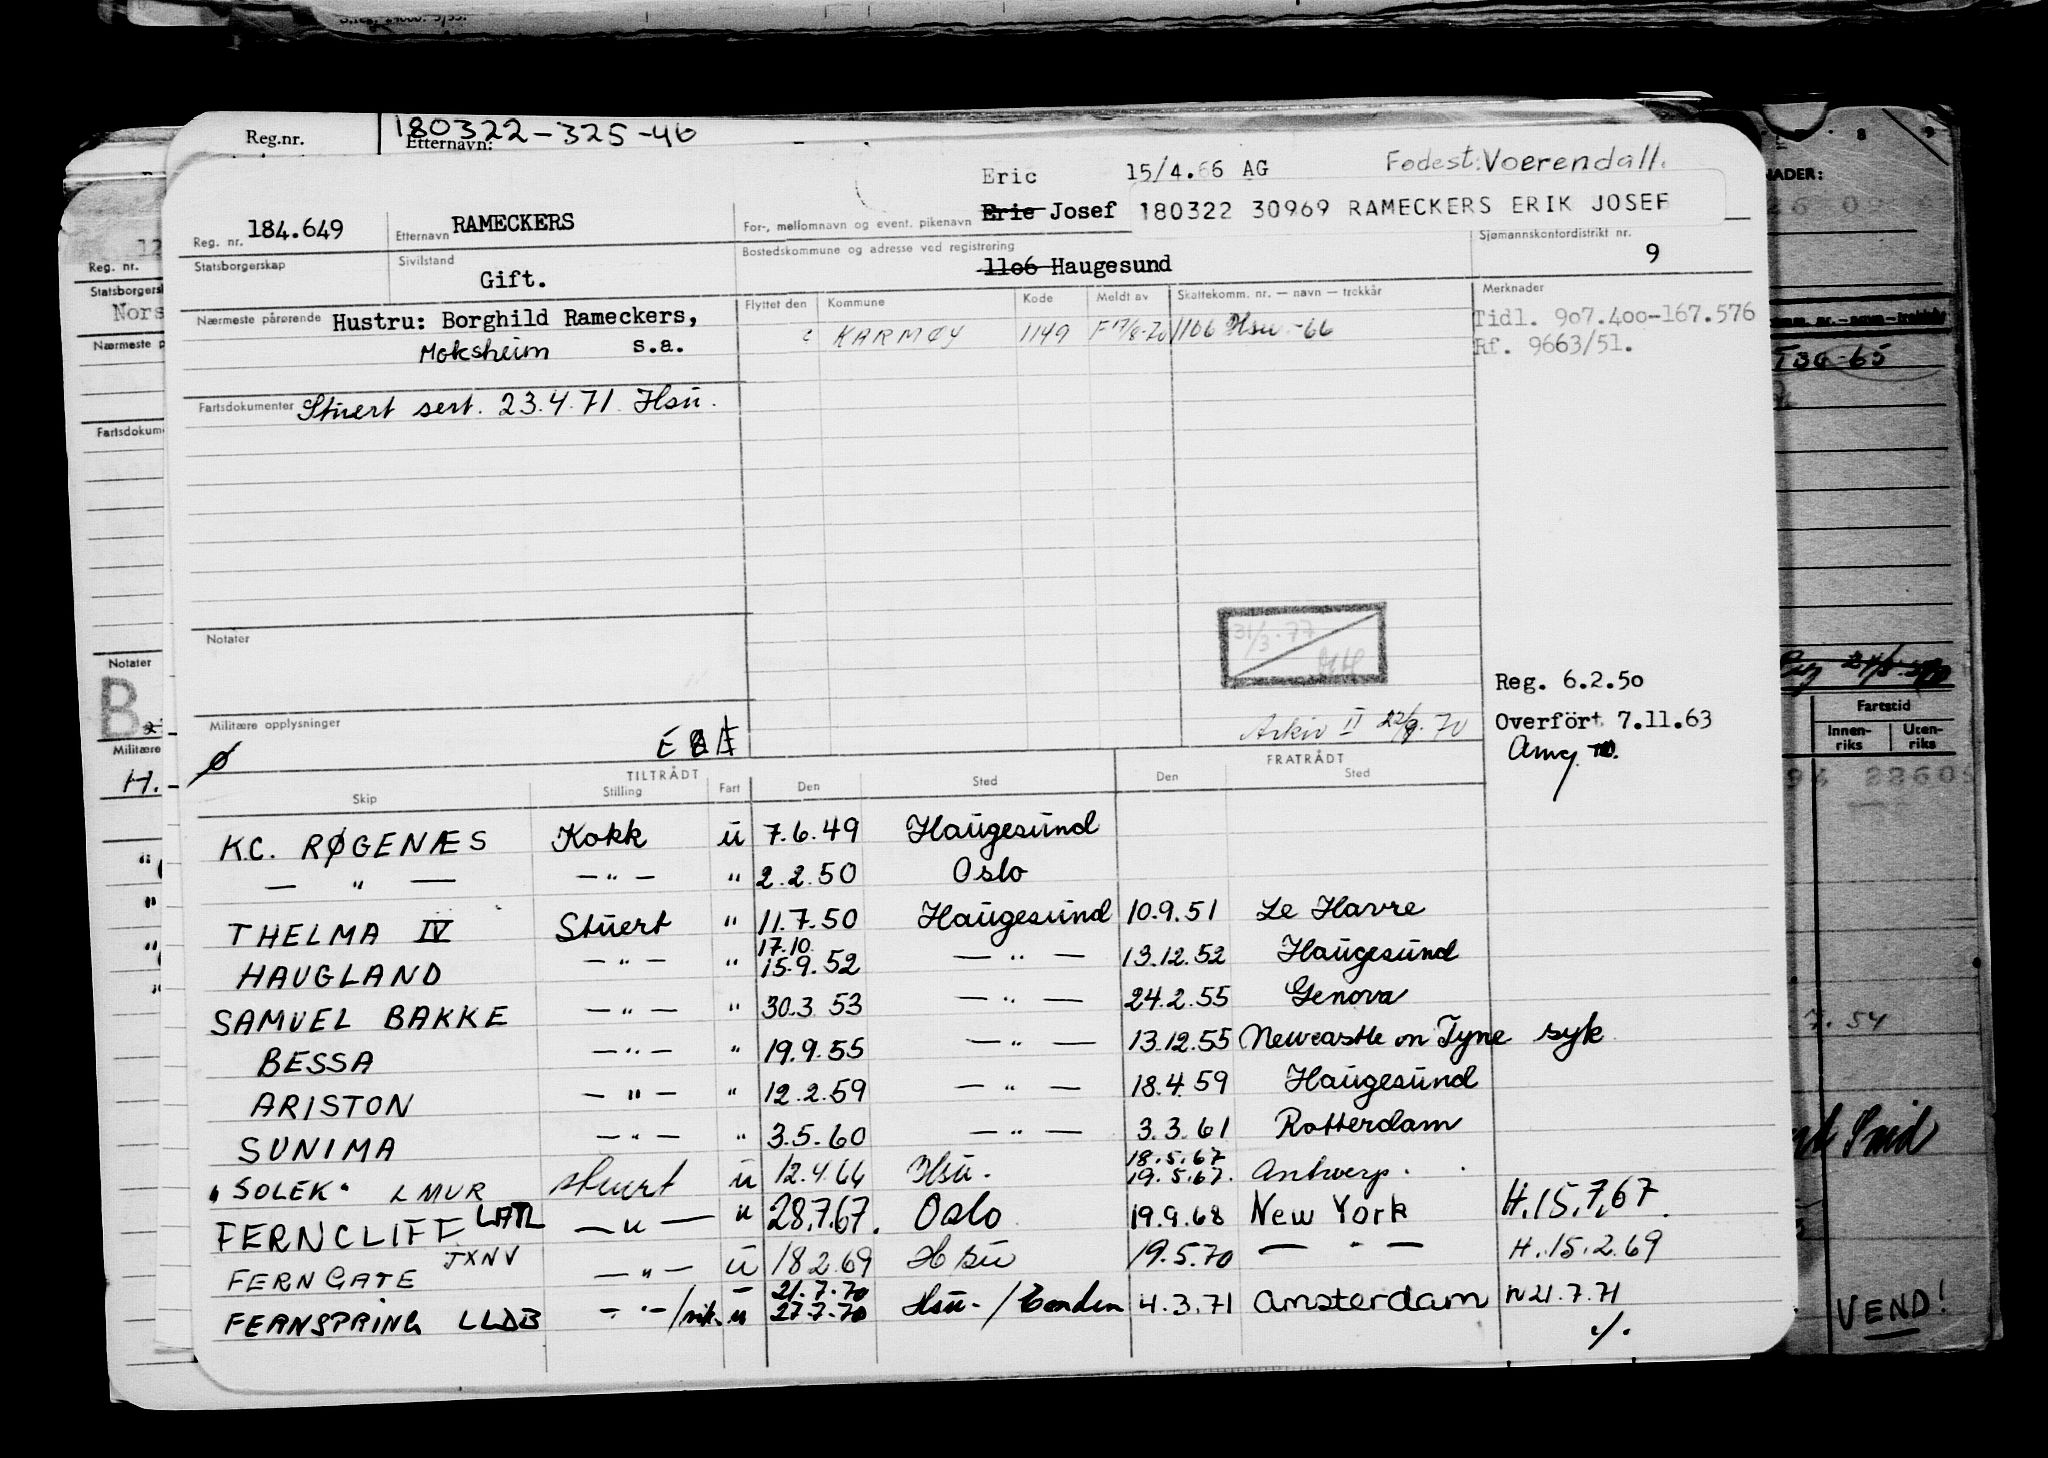 Reg.nr. 180322-325-46
Etternavn:
Eric 15/4.66 AG Fødest: Voerendall.
Reg. nr. 184.649 Etternavn RAMECKERS For-, mellomnavn og event. pikenavn Eric Josef 180322 30969 RAMECKERS ERIK JOSEF
Statsborgerskap Sivilstand Gift. Bostedskommune og adresse ved registrering 1106 Haugesund Sjømannskontordistrikt nr. 9
Nærmeste pårørende Hustru: Borghild Rameckers, Flyttet den Kommune Kode Meldt av Skattekomm. nr. — navn — trekkår Merknader
Moksheim s.a. KARMØY 1149 F17/8-70 1106 Hsu -66 Tidl. 907.400-167.576
Rf. 9663/51.
Fartsdokumenter Stuert sert. 23.4.71 Hsu.
Notater
31/3-77
Reg. 6.2.50
Militære opplysninger Arkiv II 22/9.70 Overført 7.11.63
Ø
TILTRÅDT FRATRÅDT
Skip Stilling Fart Den Sted Den Sted
K.C. RØGENÆS Kokk u 7.6.49 Haugesund
— " — — " — " 2.2.50 Oslo
THELMA IV Stuert " 11.7.50 Haugesund 10.9.51 Le Havre
17.10.
HAUGLAND — " — " 15.9.52 — " — 13.12.52 Haugesund
SAMUEL BAKKE — " — " 30.3 53 — " — 24.2.55 Genova
BESSA — " — " 19.9.55 — " — 13.12.55 Newcastle on Tyne syk
ARISTON — " — " 12.2.59 — " — 18.4.59 Haugesund
SUNIMA — " — " 3.5.60 — " — 3.3.61 Rotterdam
18.5.67
"SOLEK" LMUR stuert u 12.4.66 Hsu. 19.5.67. Antwerp.
FERNCLIFF LATL — " — " 28.7.67. Oslo 19.9.68 New York H.15.7.67.
FERNGATE JXNV — " — u 18 2.69 Hsu 19.5.70 — " — H.15.2.69
21.7.70
FERNSPRING LLDB — " — u 27.7.70 Hsu. / Emden 4.3.71 Amsterdam 21.7.71
./.
Reg. nr.
Nors
Fartsdokum
Notater
B
Militære
H.
NADER:
T36-65
Fartstid
Innen-riks Uten-riks
7.54
VEND!